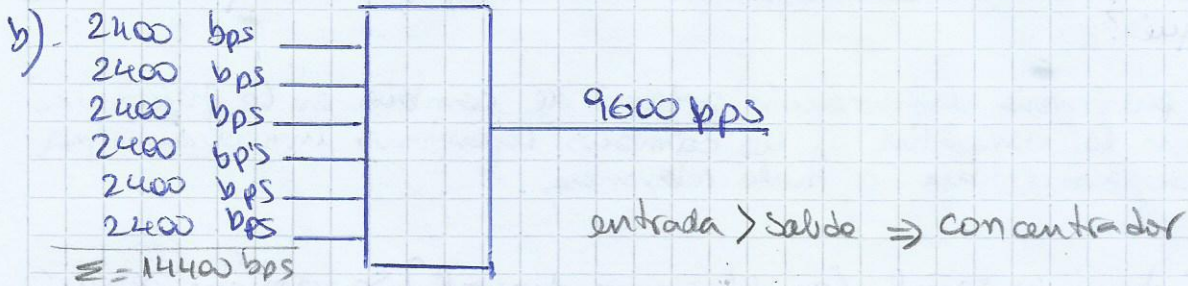 b)- 2400 bps
2400 bps
2400 bps
2400 bps
2400 bps
2400 bps
Σ = 14400 bps
9600 bps
entrada > salida ⇒ concentrador